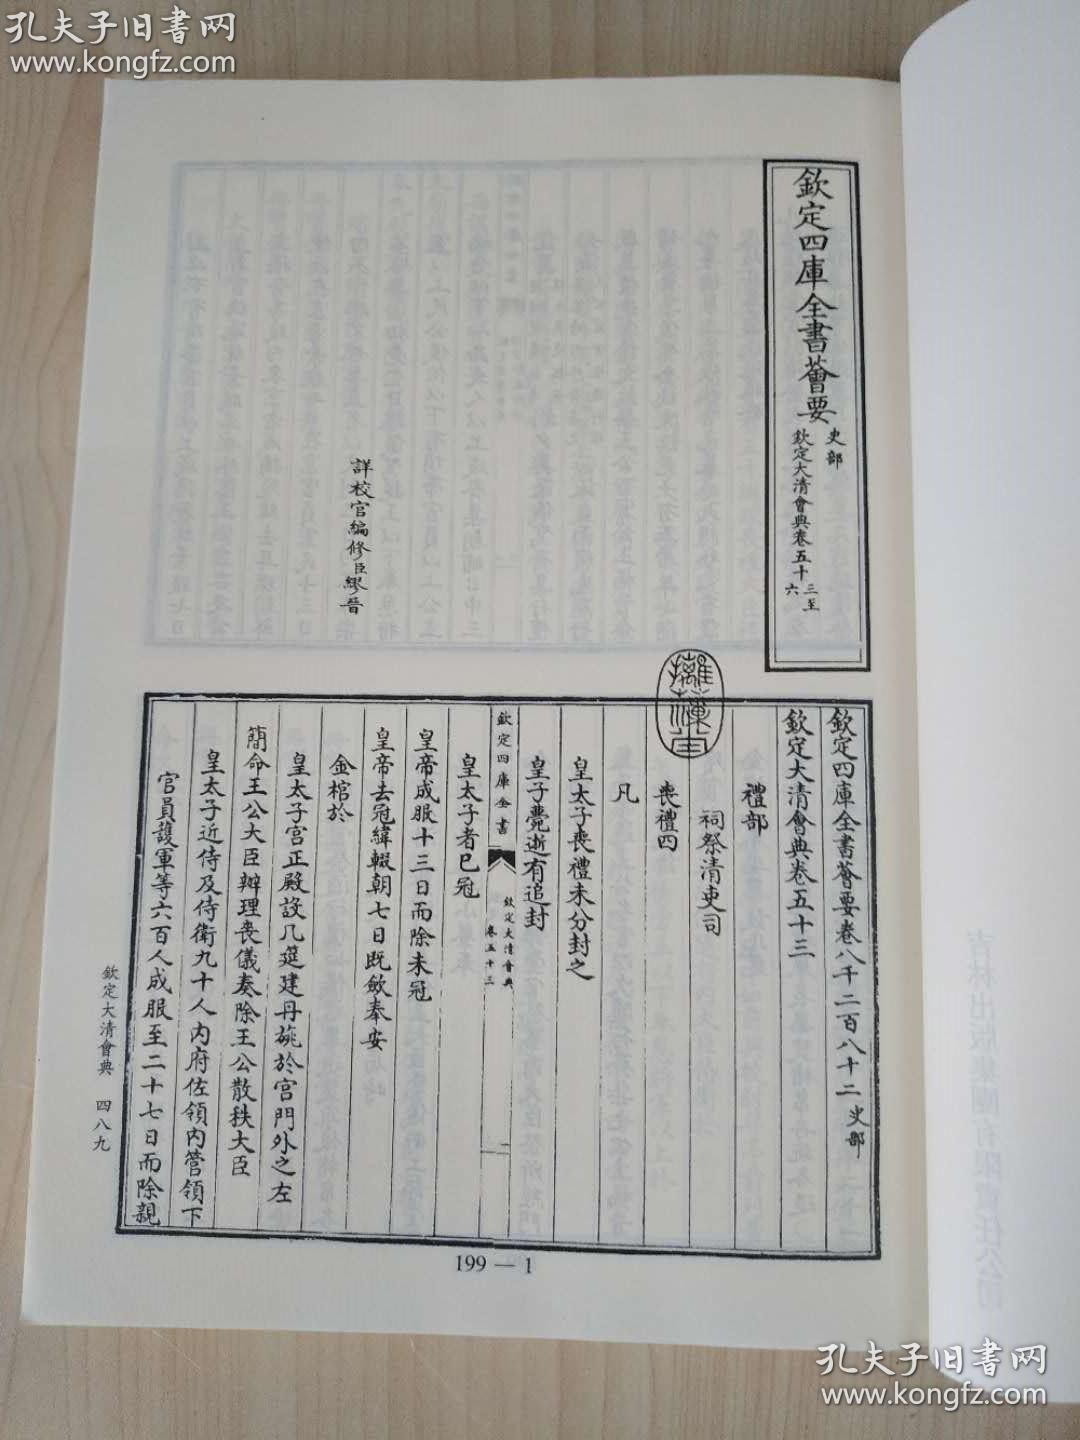 孔夫子旧书网
www.kongfz.com
欽定四庫全書薈要
史部
欽定大清會典卷五十
三至
六
詳校官編修臣繆晉
欽定四庫全書薈要卷八千二百八十二 史部
欽定大清會典卷五十三
禮部
祠祭清吏司
喪禮四
凡
皇太子喪禮未分封之
皇子薨逝有追封
欽定四庫全書
欽定大清會典
卷五十三
一
皇太子者已冠
皇帝成服十三日而除未冠
皇帝去冠緯輟朝七日既斂奉安
金棺於
皇太子宮正殿設几筵建丹旐於宮門外之左
簡命王公大臣辦理喪儀奏除王公散秩大臣
皇太子近侍及侍衛九十人內府佐領內管領下
官員護軍等六百人成服至二十七日而除親
欽定大清會典 四八九
199 — 1
孔夫子旧书网
www.kongfz.com